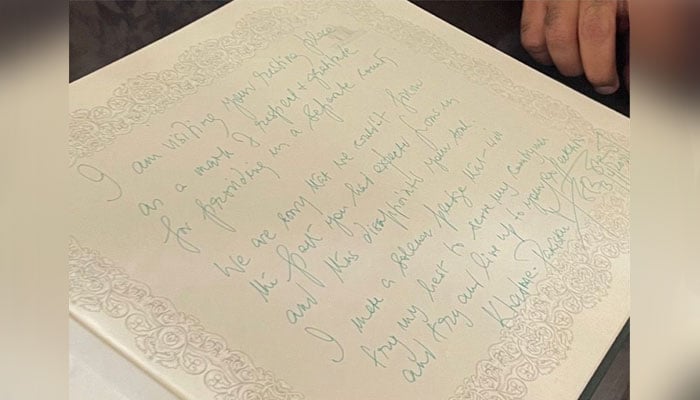 I am visiting your resting place
as a mark of respect & gratitude
for providing us a separate county
We are sorry that we couldn't follow
the path you had expected from us
and thus disappointed your soul.
I make a solemn pledge that I will
try my best to serve my countrymen
and try and live up to your expectations